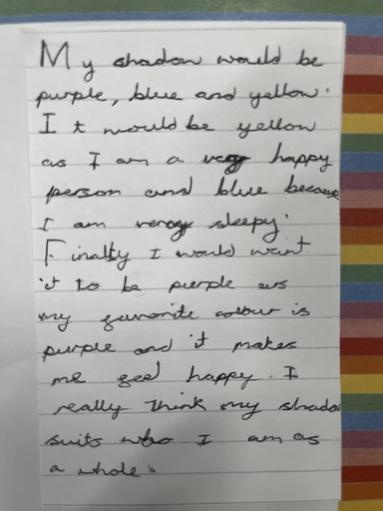 My shadow would be
purple, blue and yellow.
It would be yellow
as I am a very happy
person and blue because
I am very sleepy.
Finally I would want
it to be purple as
my favorite colour is
purple and it makes
me feel happy. I
really think my shado
suits who I am as
a whole.